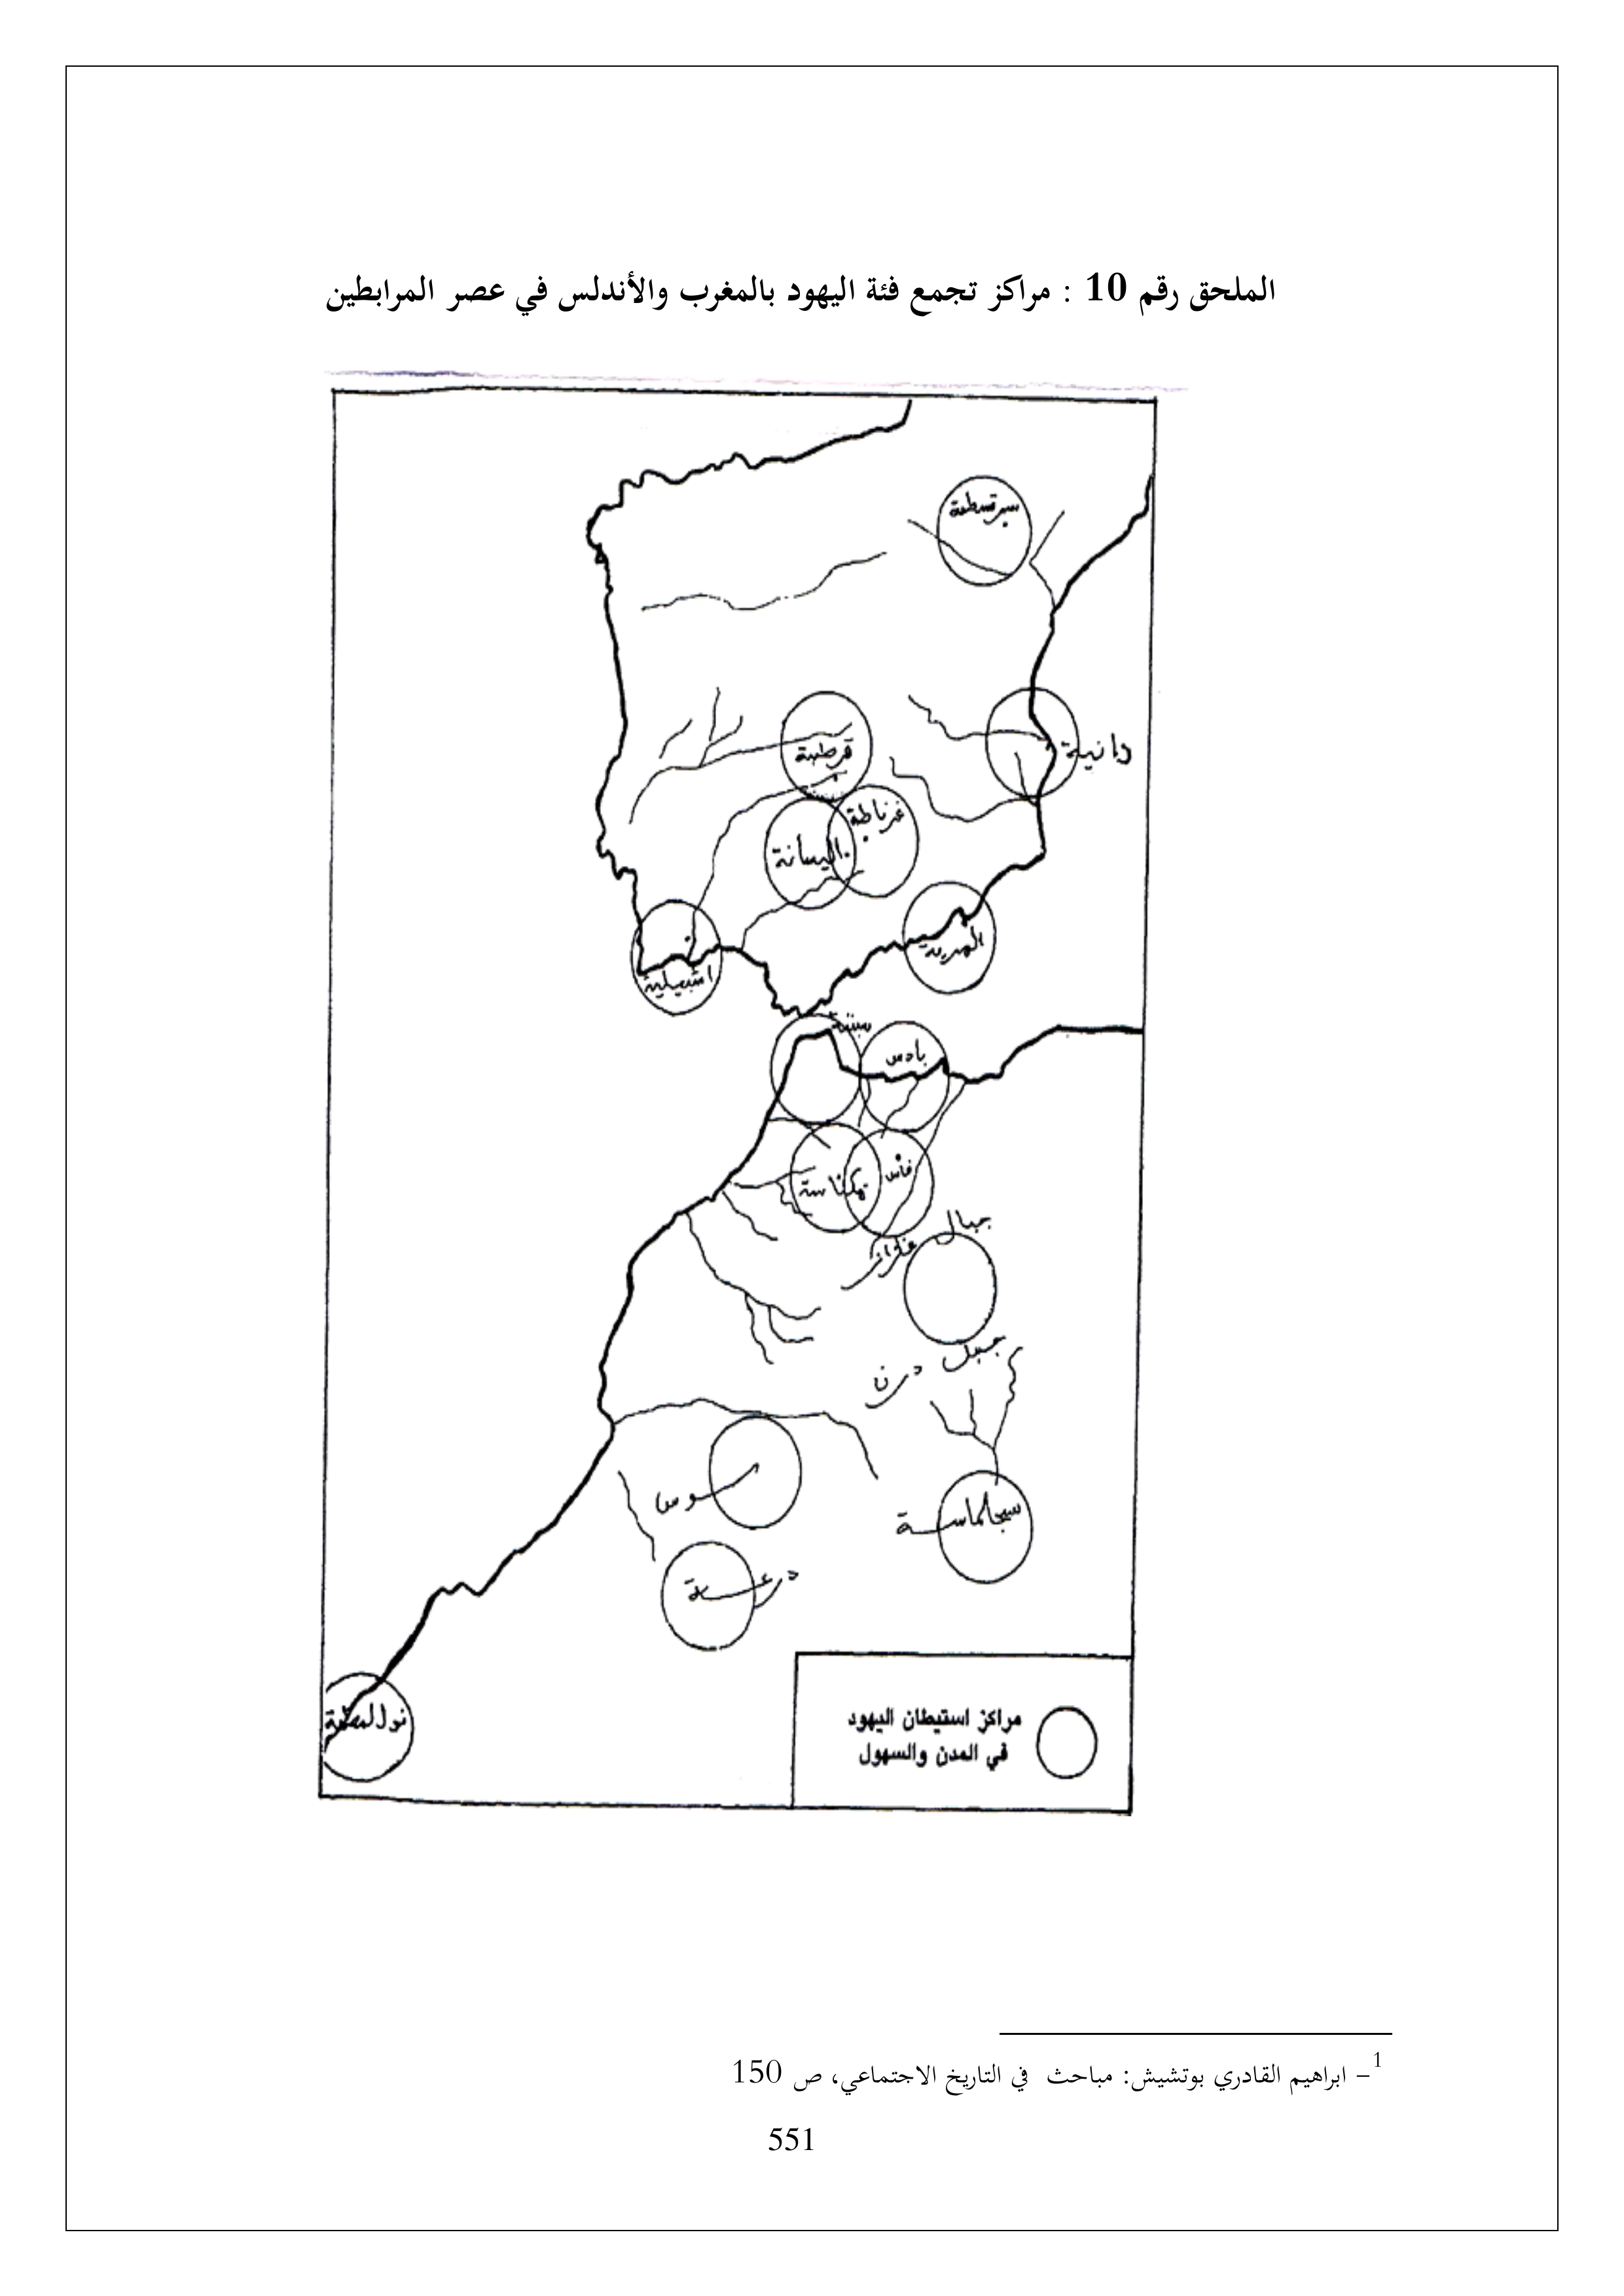 الملحق رقم 10 : مراكز تجمع فئة اليهود بالمغرب والأندلس في عصر المرابطين
سرقسطة
دانية
قرطبة
غرناطة
اليسانة
المرية
اشبيلية
سبتة
بادس
فاس
مكناسة
جبال فازاز
جبل درن
سوس
سجلماسة
درعة
نول لمطة
مراكز استيطان اليهود
في المدن والسهول
1– ابراهيم القادري بوتشيش: مباحث في التاريخ الاجتماعي، ص 150
551